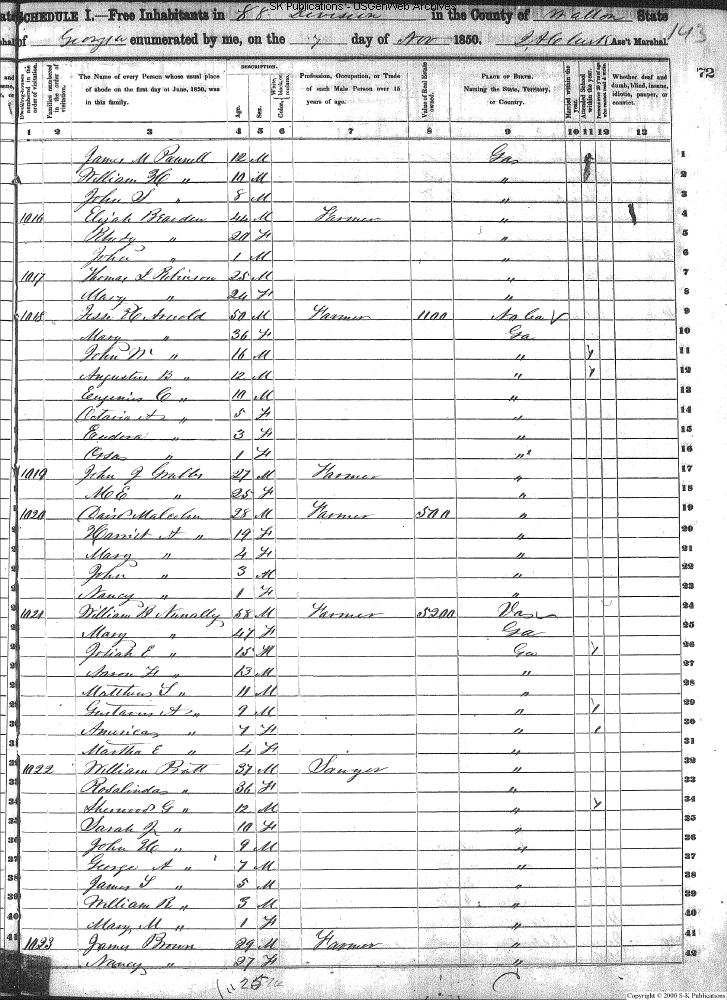 SK Publications - USGenWeb Archives
SCHEDULE I.—Free Inhabitants in 88 Division in the County of Walton State
of Georgia enumerated by me, on the 7 day of Nov 1850. Ass't Marshal. 143
72
Dwelling-houses numbered in the order of visitation.
Families numbered in the order of visitation.
The Name of every Person whose usual place of abode on the first day of June, 1850, was in this family.
DESCRIPTION.
Age.
Sex.
Color, White, black, or mulatto.
Profession, Occupation, or Trade of each Male Person over 15 years of age.
Value of Real Estate owned.
PLACE OF BIRTH. Naming the State, Territory, or Country.
Married within the year.
Attended School within the year.
Whether deaf and dumb, blind, insane, idiotic, pauper, or convict.
1 2 3 4 5 6 7 8 9 10 11 12 13
James M Pannell 12 M Ga 1
William H " 10 M " 2
John S " 8 M " 3
1016 Elijah Bearden 44 M Farmer " 4
" 20 F " 5
John " 1 M " 6
1017 Thomas L Robinson 25 M " 7
Mary " 24 F " 8
1018 Jesse H Arnold 50 M Farmer 1100 No Ca 9
Mary " 36 F Ga 10
John W " 16 M " 11
Augustus B " 12 M " 12
Eugenius C " 10 M " 13
Octavia A " 5 F " 14
Eudora " 3 F " 15
" 1 F " 16
1019 John J Grabbs 27 M Farmer " 17
M E " 25 F " 18
1020 David Malcolm 28 M Farmer 500 " 19
Harriet A " 19 F " 20
Mary " 4 F " 21
John " 3 M " 22
Nancy " 1 F " 23
1021 William B Nunally 58 M Farmer 5200 Va 24
Mary " 47 F Ga 25
Josiah E " 15 M Ga 26
Aaron F " 13 M " 27
Matthew S " 11 M " 28
Gustavus A " 9 M " 29
Americas " 7 F " 30
Martha E " 4 F " 31
1022 William Pratt 37 M Sawyer " 32
Rosalinda " 36 F " 33
Sherwood G " 12 M " 34
Sarah J " 10 F " 35
John H " 9 M " 36
George A " 7 M " 37
James S " 5 M " 38
William R " 3 M " 39
Mary M " 1 F " 40
1023 James Brown 29 M Farmer " 41
Nancy " 27 F " 42
25
Copyright © 2000 S-K Publications